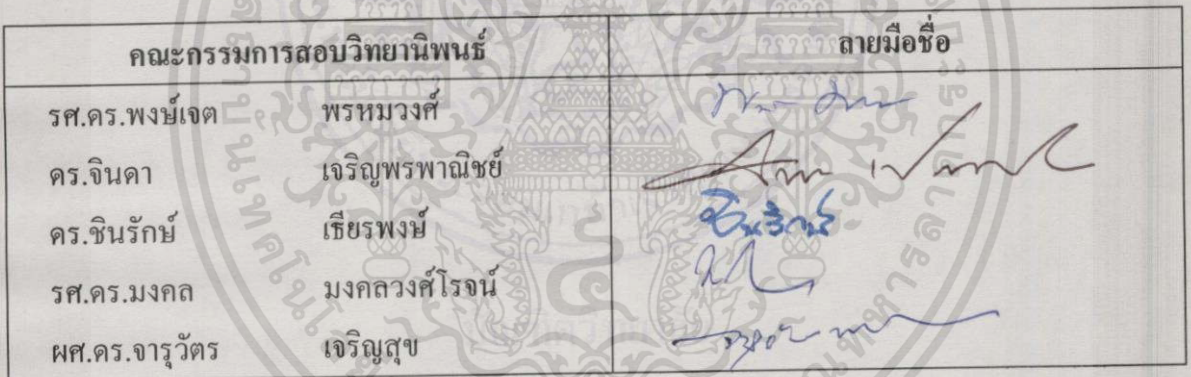 คณะกรรมการสอบวิทยานิพนธ์ ลายมือชื่อ
รศ.ดร.พงษ์เจต พรหมวงศ์
ดร.จินดา เจริญพรพาณิชย์
ดร.ชินรักษ์ เธียรพงษ์ ชินรักษ์
รศ.ดร.มงคล มงคลวงศ์โรจน์
ผศ.ดร.จารุวัตร เจริญสุข